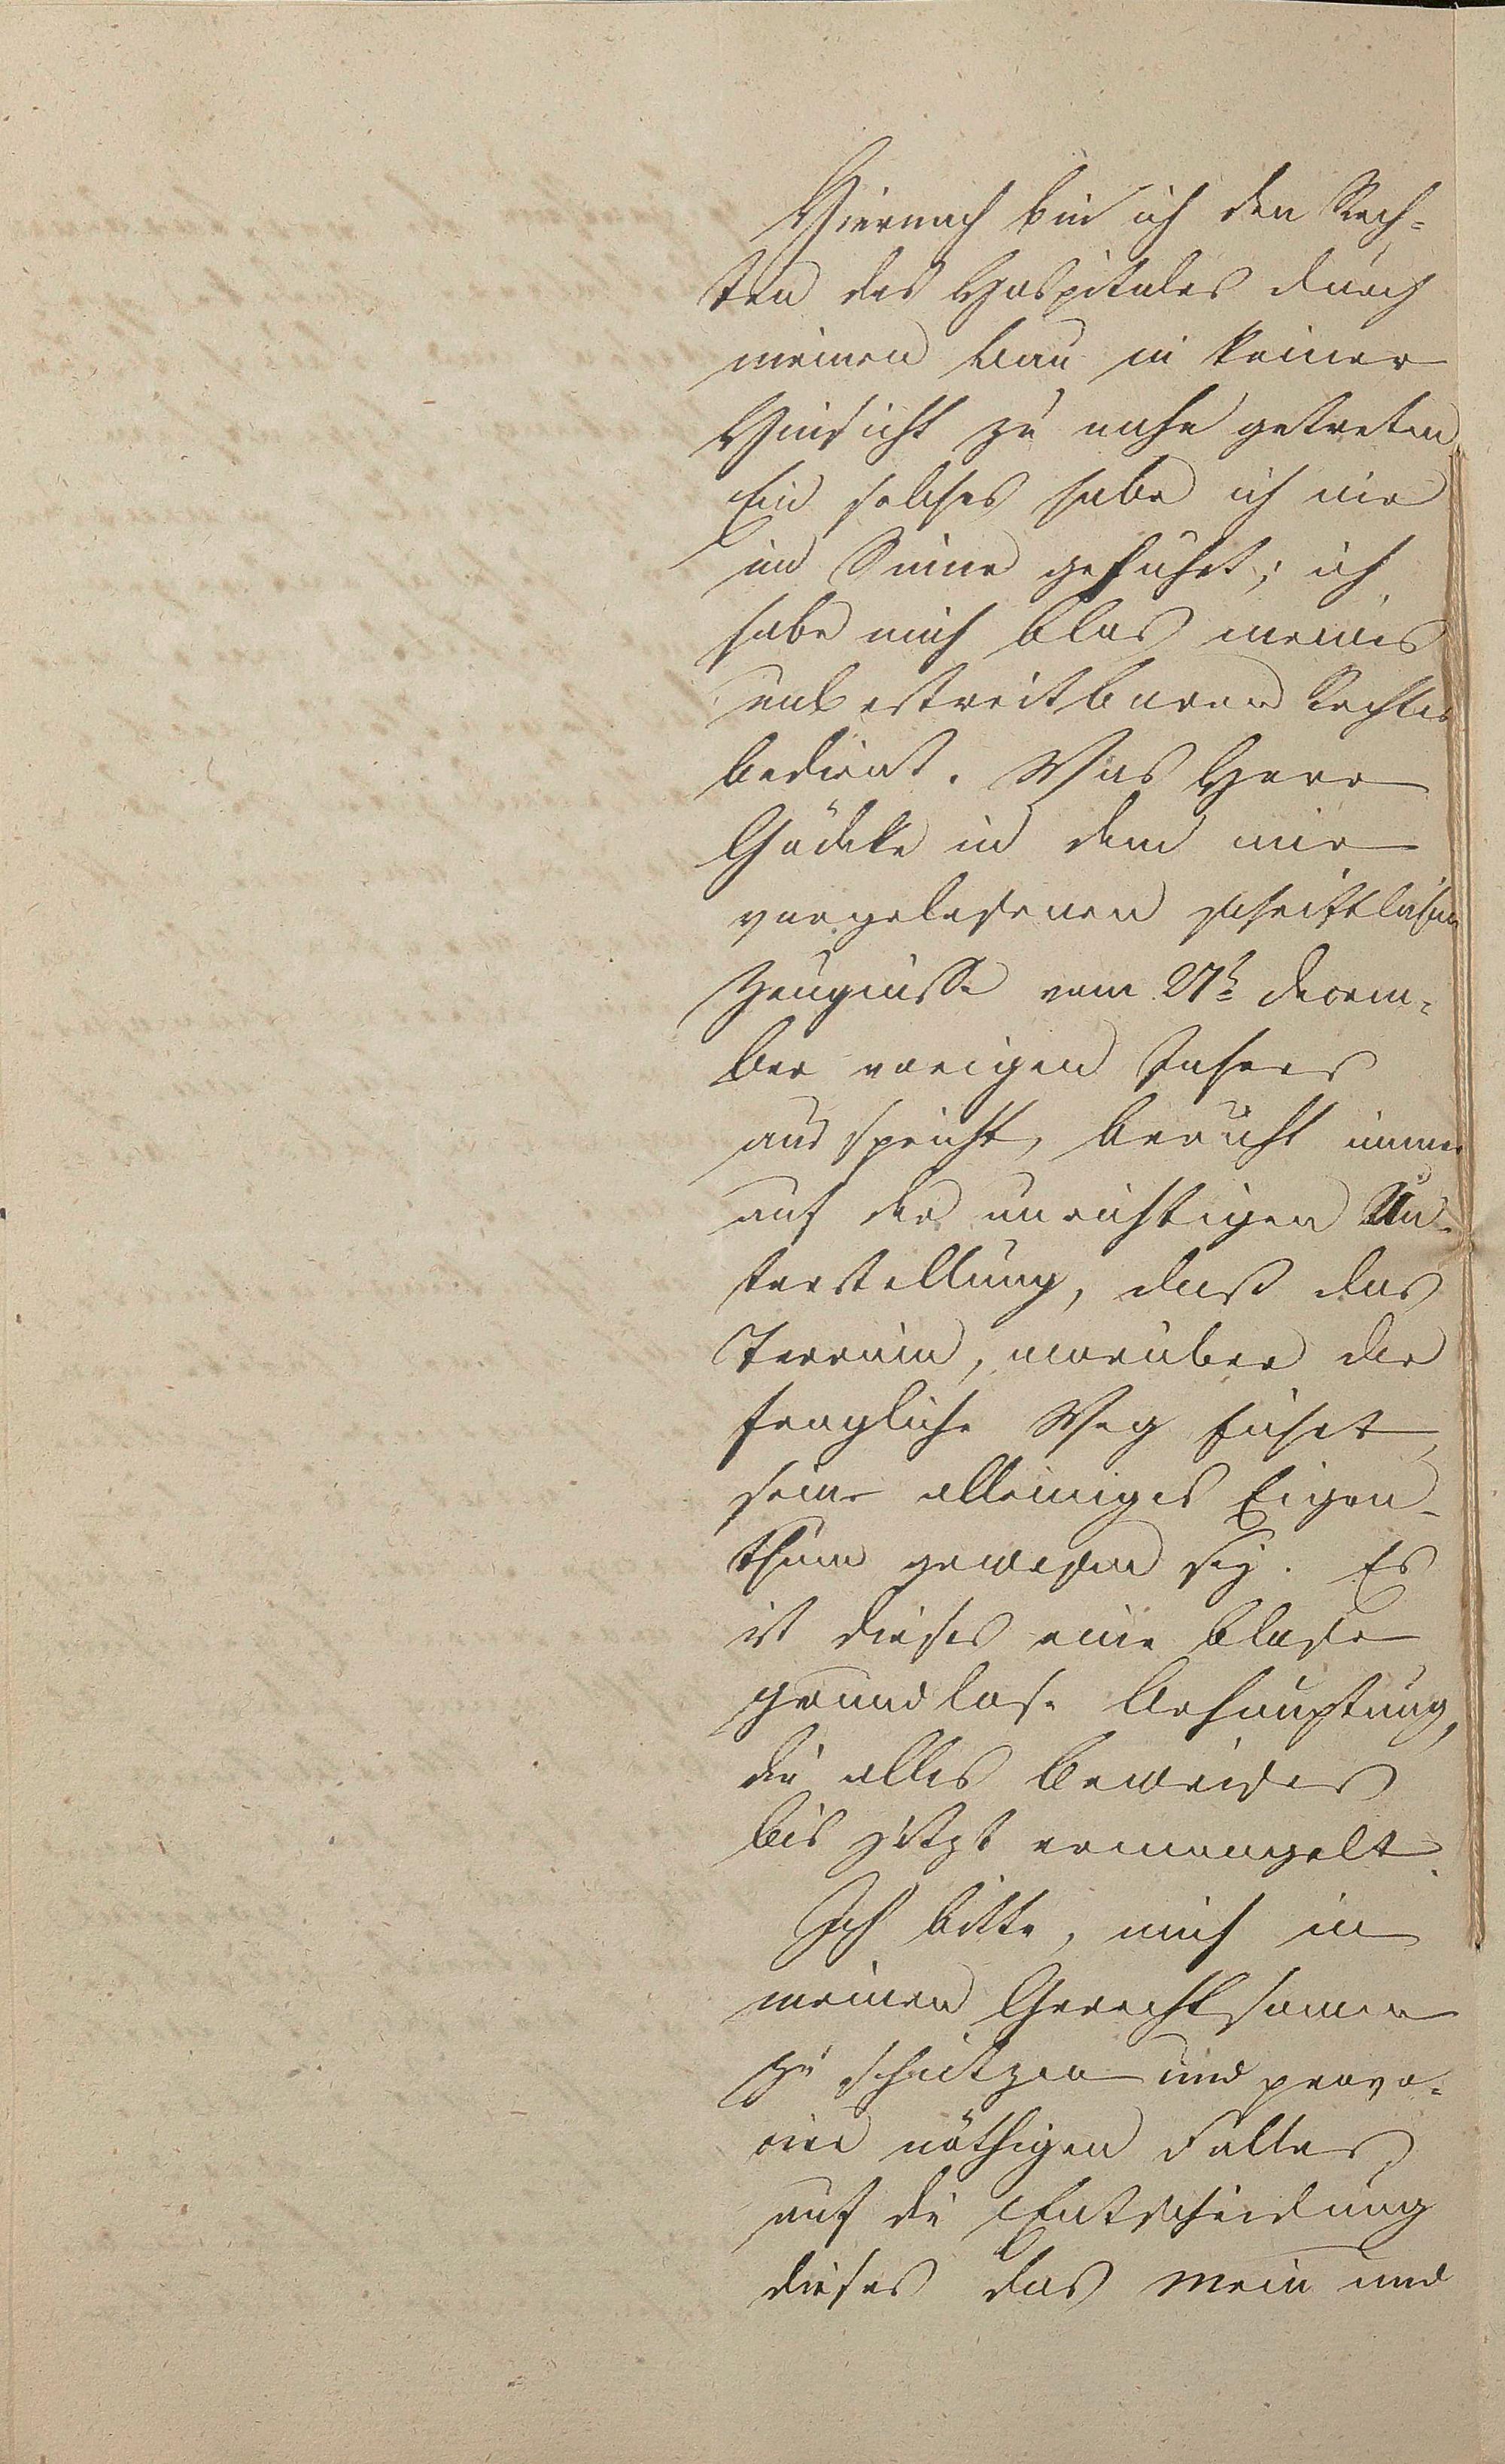 Hiernach bin ich den Rech-
ten des Hospitales durch
meinen Bau in keiner
Hinsicht zu nahe getreten
Ein solches habe ich nie
im Sinne geführt; ich
habe mich blos meines
unbestreitbaren Rechtes
bedient. Was Herr
Gödeke in dem mir
vorgelesenen schriftlichen
Zeugnisse vom 27t Decem-
ber vorigen Jahres
ausspricht, beruht immer
auf der unrichtigen Un-
terstellung, daß das
Terrain, worüber der
fragliche Weg führt,
sein alleiniges Eigen-
thum gewesen sey. Es
ist dieses eine blose
grundlose Behauptung,
die alles Beweises
bis jetzt ermangelt.
Ich bitte, mich in
meinen Gerechtsamen
zu schützen und provo-
cire nöthigen Falles
auf die Entscheidung
dieses das Mein und